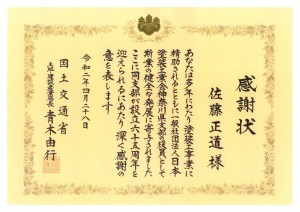 感謝状
佐藤正道様
あなたは多年にわたり塗装工事業に
精励されるとともに一般社団法人日本
塗装工業会神奈川県支部の役員として
斯業の健全な発展に寄与されました
ここに同支部が設立六十五周年を
迎えられるにあたり深く感謝の
意を表します
令和二年四月二十八日
国土交通省
土地・建設産業局長 青木由行